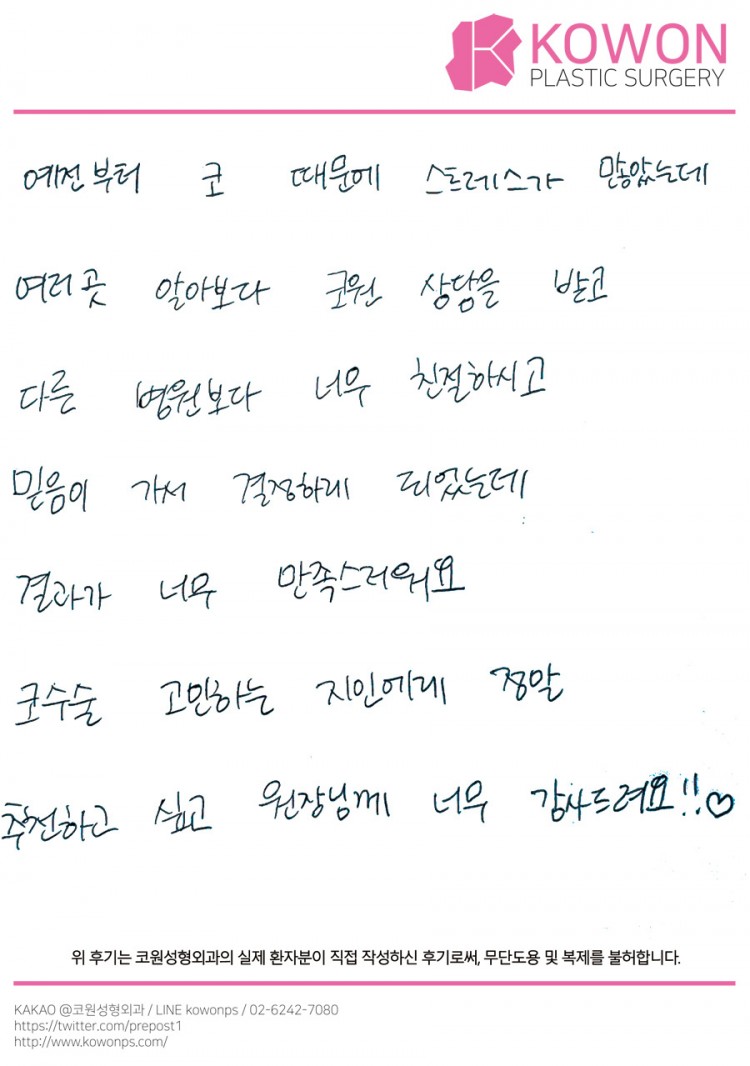 KOWON
PLASTIC SURGERY
예전부터 코 때문에 스트레스가 많았는데
여러곳 알아보다 코원 상담을 받고
다른 병원보다 너무 친절하시고
믿음이 가서 결정하게 되었는데
결과가 너무 만족스러워요
코수술 고민하는 지인에게 정말
추천하고 싶고 원장님께 너무 감사드려요!!♡
위 후기는 코원성형외과의 실제 환자분이 직접 작성하신 후기로써, 무단도용 및 복제를 불허합니다.
KAKAO @코원성형외과 / LINE kowonps / 02-6242-7080
https://twitter.com/prepost1
http://www.kowonps.com/